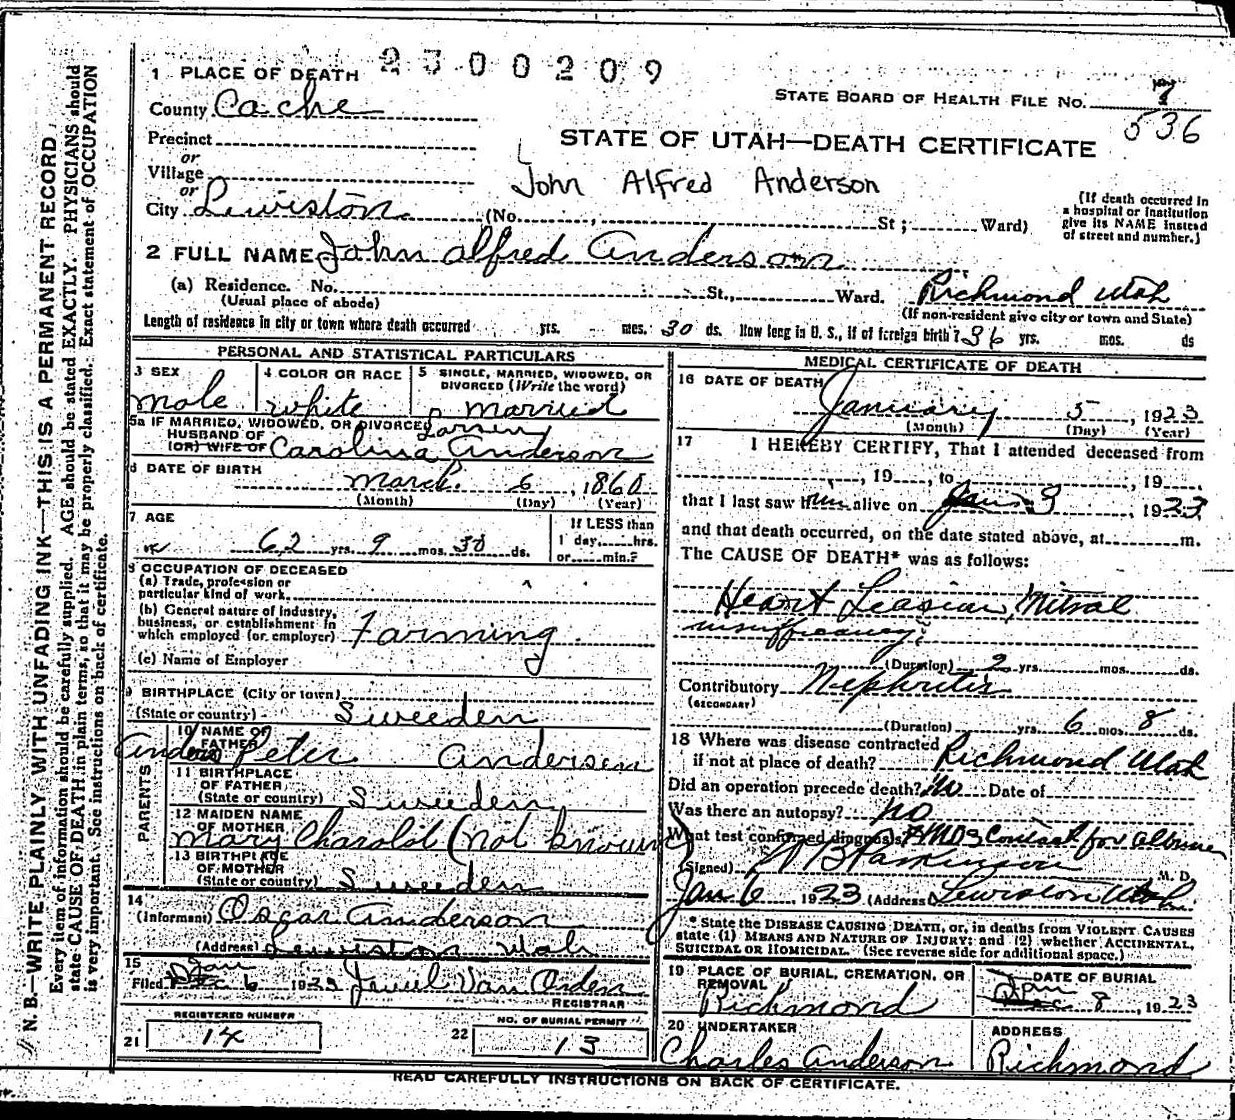 2300209
1 PLACE OF DEATH
STATE BOARD OF HEALTH FILE NO. 7
536
County Cache
STATE OF UTAH—DEATH CERTIFICATE
Precinct
or
Village
John Alfred Anderson
or
City Lewiston (No. , St ; Ward)
(If death occurred in a hospital or institution give its NAME instead of street and number.)
2 FULL NAME John Alfred Anderson
(a) Residence. No. St., Ward. Richmond Utah
(Usual place of abode)
(If non-resident give city or town and State)
Length of residence in city or town where death occurred yrs. mos. 30 ds. How long in U. S., if of foreign birth? 36 yrs. mos. ds
PERSONAL AND STATISTICAL PARTICULARS
3 SEX
male
4 COLOR OR RACE
white
5 SINGLE, MARRIED, WIDOWED, OR DIVORCED (Write the word)
married
5a IF MARRIED, WIDOWED, OR DIVORCED
HUSBAND OF
(OR) WIFE OF
Larsen
Carolina Anderson
6 DATE OF BIRTH
March 6, 1860
(Month) (Day) (Year)
7 AGE
62 yrs. 9 mos. 30 ds.
If LESS than
1 day, hrs.
or min.?
8 OCCUPATION OF DECEASED
(a) Trade, profession or
particular kind of work
(b) General nature of industry,
business, or establishment in
which employed (or employer) Farming
(c) Name of Employer
9 BIRTHPLACE (City or town)
(State or country) Sweeden
PARENTS
10 NAME OF FATHER
Anders Peter Andersen
11 BIRTHPLACE
OF FATHER
(State or country) Sweeden
12 MAIDEN NAME
OF MOTHER
Mary Charolot (not known)
13 BIRTHPLACE
OF MOTHER
(State or country) Sweeden
14
(Informant) Oscar Anderson
(Address) Lewiston Utah
15
Filed Jan 6 1923 Jewel Van Orden
REGISTRAR
REGISTERED NUMBER
21 14
NO. OF BURIAL PERMIT
22 13
MEDICAL CERTIFICATE OF DEATH
16 DATE OF DEATH
January 5, 1923
(Month) (Day) (Year)
17 I HEREBY CERTIFY, That I attended deceased from
, 19 , to , 19
that I last saw him alive on Jan 3, 1923
and that death occurred, on the date stated above, at m.
The CAUSE OF DEATH* was as follows:
Heart Leasion, Mitral
insufficiency.
(Duration) 2 yrs. mos. ds.
Contributory Nephritis
(SECONDARY)
(Duration) yrs. 6 mos. 8 ds.
18 Where was disease contracted
if not at place of death? Richmond Utah
Did an operation precede death? No Date of
Was there an autopsy? no
What test confirmed diagnosis
(Signed) Parkinson M. D.
Jan 6, 1923 (Address) Lewiston Utah
* State the DISEASE CAUSING DEATH, or, in deaths from VIOLENT CAUSES
state (1) MEANS AND NATURE OF INJURY; and (2) whether ACCIDENTAL,
SUICIDAL OR HOMICIDAL. (See reverse side for additional space.)
19 PLACE OF BURIAL, CREMATION, OR REMOVAL
Richmond
DATE OF BURIAL
Jan 8, 1923
20 UNDERTAKER
Charles Anderson
ADDRESS
Richmond
READ CAREFULLY INSTRUCTIONS ON BACK OF CERTIFICATE.
N. B.—WRITE PLAINLY WITH UNFADING INK—THIS IS A PERMANENT RECORD
Every item of information should be carefully supplied. AGE should be stated EXACTLY. PHYSICIANS should
state CAUSE OF DEATH in plain terms, so that it may be properly classified. Exact statement of OCCUPATION
is very important. See instructions on back of certificate.